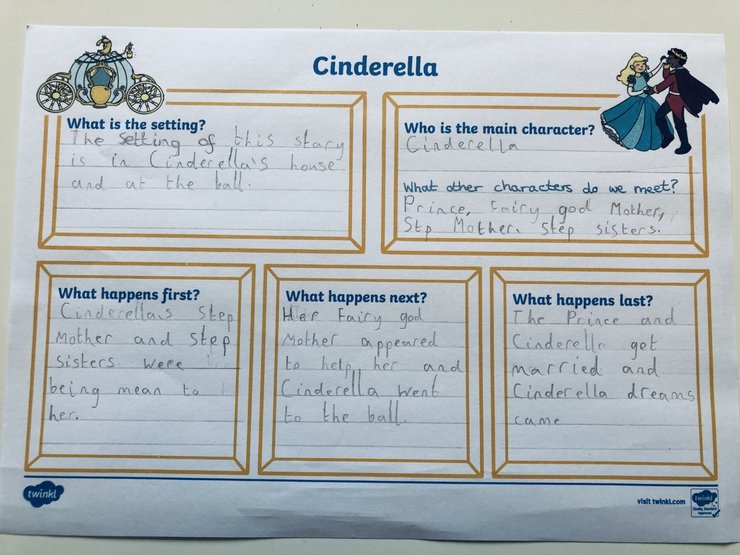 Cinderella
What is the setting?
The setting of this stary
is in Cinderella's house
and at the ball.
Who is the main character?
Cinderella
What other characters do we meet?
Prince, Fairy god Mother,
Stp Mother. Step sisters.
What happens first?
Cinderella's Step
Mother and Step
sisters were
being mean to
her.
What happens next?
Her Fairy god
Mother appeared
to help her and
Cinderella went
to the ball.
What happens last?
The Prince and
Cinderella got
married and
Cinderella dreams
came
twinkl
visit twinkl.com
twinkl